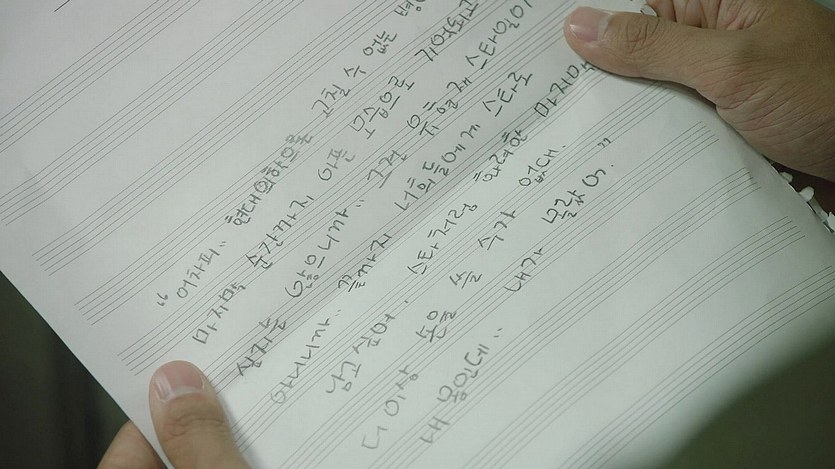 “ 어차피.. 현대의학으론 고칠 수 없는 병
마지막 순간까지 아픈 모습으로 기억되고
싶지는 않으니까.. 그건 유일재 스타일이
아니니까.. 끝까지 너희들에게 스타로
남고 싶어. 스타처럼 화려한 마지막
더 이상 손을 쓸 수가 없대.
내 몸인데.. 내가 몰랐어. ”